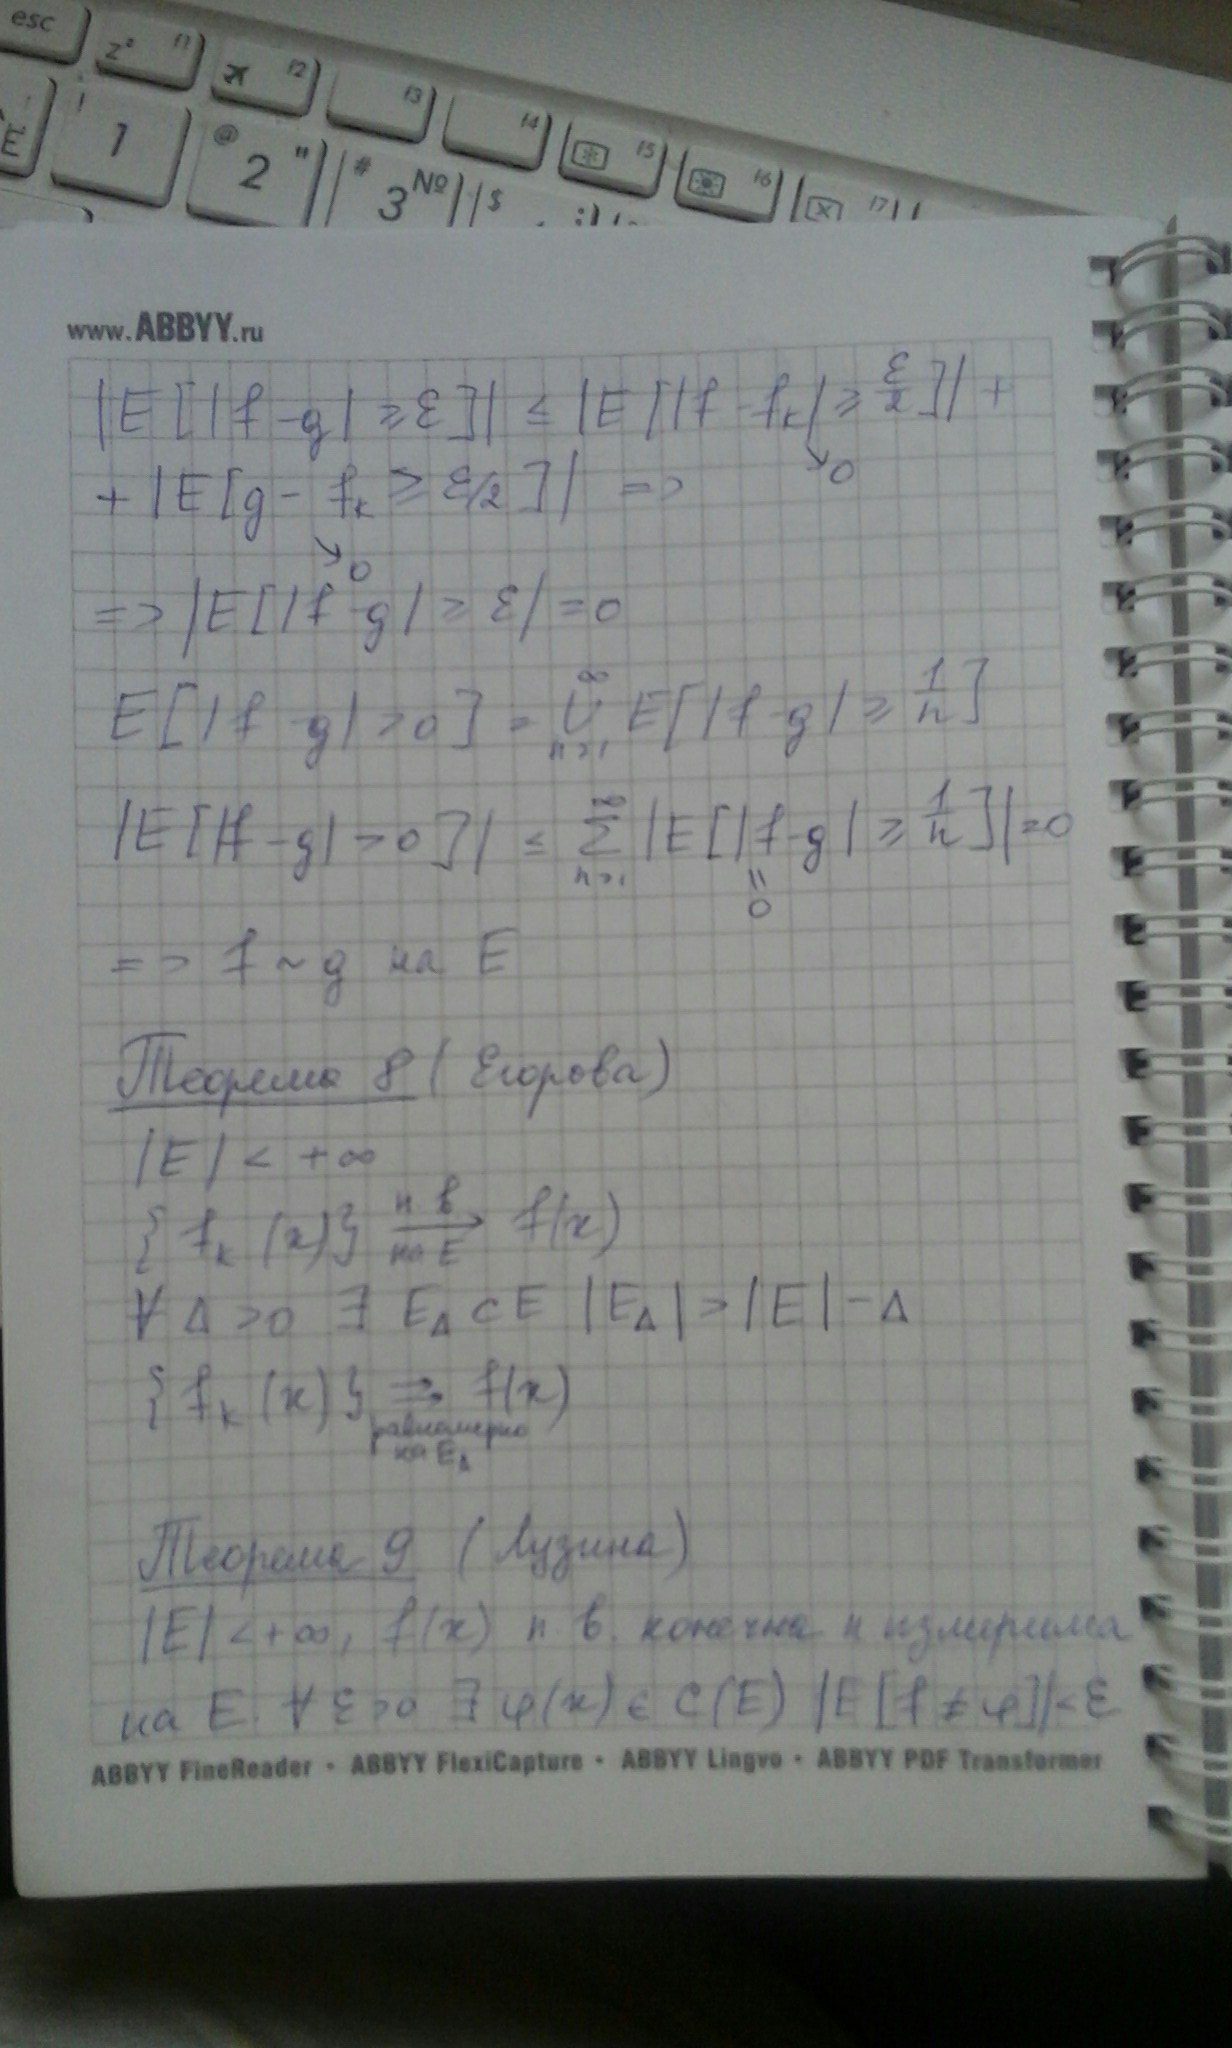 esc
z² 11
x 12
13
14
15
16
17
Ё
! 1
@ 2 "
# 3 №
$
www.ABBYY.ru
|E[|f - g| ≥ ε]| ≤ |E[|f - fₖ| ≥ ε/2]| +
↘0
+ |E[g - fₖ ≥ ε/2]| =>
↘0
=> |E[|f - g| ≥ ε| = 0
E[|f - g| > 0] = ∪ₙ₌₁^∞ E[|f - g| ≥ 1/n]
|E[|f - g| > 0]| ≤ Σₙ₌₁^∞ |E[|f - g| ≥ 1/n]| = 0
||
0
=> f ~ g на E
Теорема 8 (Егорова)
|E| < +∞
{fₖ(x)} п в → на E f(x)
∀ Δ > 0 ∃ E_Δ ⊂ E |E_Δ| > |E| - Δ
{fₖ(x)} ⇉ f(x)
равномерно
на E_Δ
Теорема 9 (Лузина)
|E| < +∞, f(x) п в. конечна и измерима
на E ∀ ε > 0 ∃ φ(x) ∈ C(E) |E[f ≠ φ]| < ε
ABBYY FineReader • ABBYY FlexiCapture • ABBYY Lingvo • ABBYY PDF Transformer